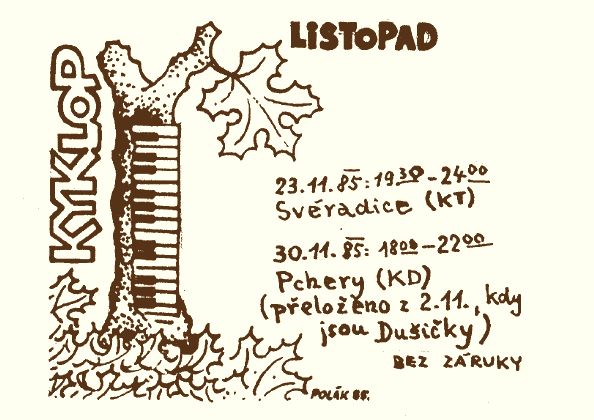 KYKLOP
LiSTOPAD
23.11.85: 19³⁰-24⁰⁰
Svéradice (KT)
30.11.85: 18⁰⁰-22⁰⁰
Pchery (KD)
(přeloženo z 2.11., kdy
jsou Dušičky)
BEZ ZÁRUKY
POLÁK 85.